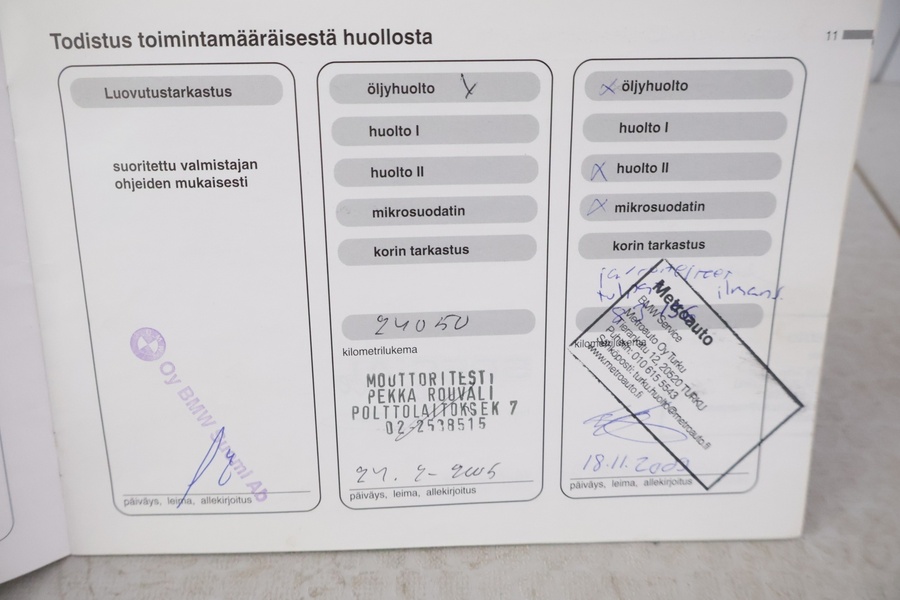 Todistus toimintamääräisestä huollosta
11
Luovutustarkastus
suoritettu valmistajan
ohjeiden mukaisesti
Oy BMW Suomi Ab
päiväys, leima, allekirjoitus
öljyhuolto
huolto I
huolto II
mikrosuodatin
korin tarkastus
24050
kilometrilukema
MOUTTORITESTI
PEKKA ROUVALI
POLTTOLAITOKSEK 7
02-2538515
päiväys, leima, allekirjoitus
X öljyhuolto
huolto I
X huolto II
X mikrosuodatin
korin tarkastus
kilometrilukema
Metroauto
BMW Service
Metroauto Oy Turku
12, 20520 TURKU
Puhelin: 010 615 5543
Sähköposti: turku.huolto@metroauto.fi
www.metroauto.fi
18.11.2009
päiväys, leima, allekirjoitus